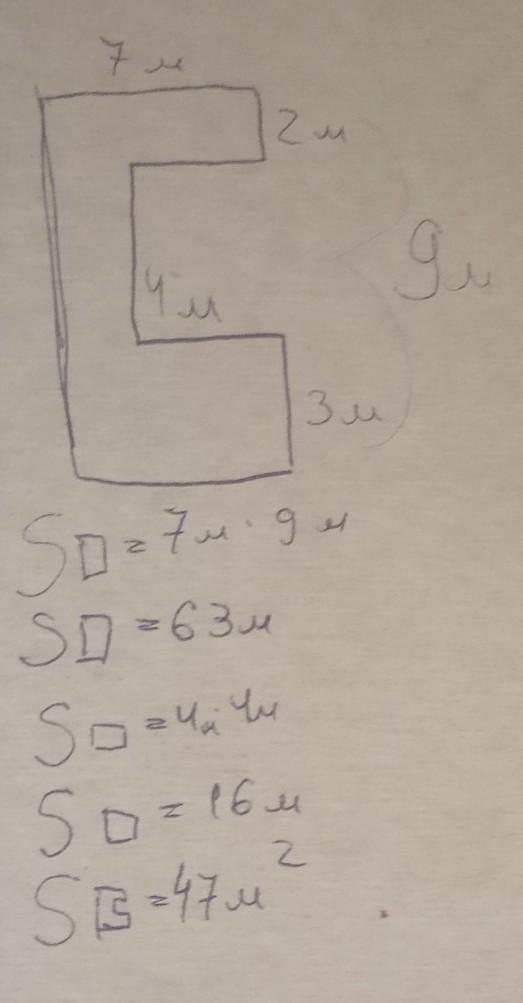 7 м
2 м
9 м
4 м
3 м
S▯ = 7 м · 9 м
S▯ = 63 м
S▭ = 4 м · 4 м
S▭ = 16 м
S = 47 м²